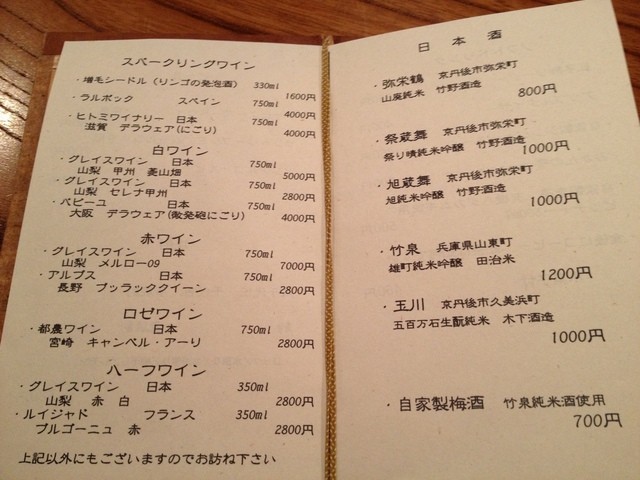 スパークリングワイン
・増毛シードル(リンゴの発泡酒) 330ml
1600円
・ラルボック スペイン 750ml
4000円
・ヒトミワイナリー 日本 750ml
滋賀 デラウェア(にごり) 4000円
白ワイン
・グレイスワイン 日本 750ml
山梨 甲州 菱山畑 5000円
・グレイスワイン 日本 750ml
山梨 セレナ甲州 2800円
・パピーユ 日本 750ml
大阪 デラウェア(微発砲にごり) 4000円
赤ワイン
・グレイスワイン 日本 750ml
山梨 メルロー09 7000円
・アルプス 日本 750ml
長野 ブッラッククイーン 2800円
ロゼワイン
・都農ワイン 日本 750ml
宮崎 キャンベル・アーリ 2800円
ハーフワイン
・グレイスワイン 日本 350ml
山梨 赤 白 2800円
・ルイジャド フランス 350ml
ブルゴーニュ 赤 2800円
上記以外にもございますのでお訪ね下さい
日本酒
・弥栄鶴 京丹後市弥栄町
山廃純米 竹野酒造 800円
・祭蔵舞 京丹後市弥栄町
祭り晴純米吟醸 竹野酒造 1000円
・旭蔵舞 京丹後市弥栄町
旭純米吟醸 竹野酒造
1000円
・竹泉 兵庫県山東町
雄町純米吟醸 田治米
1200円
・玉川 京丹後市久美浜町
五百万石生酛純米 木下酒造
1000円
・自家製梅酒 竹泉純米酒使用
700円